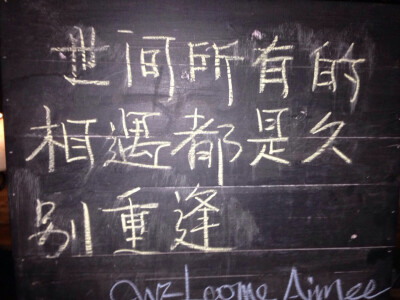 世间所有的
相遇都是久
别重逢
Welcome Aimee